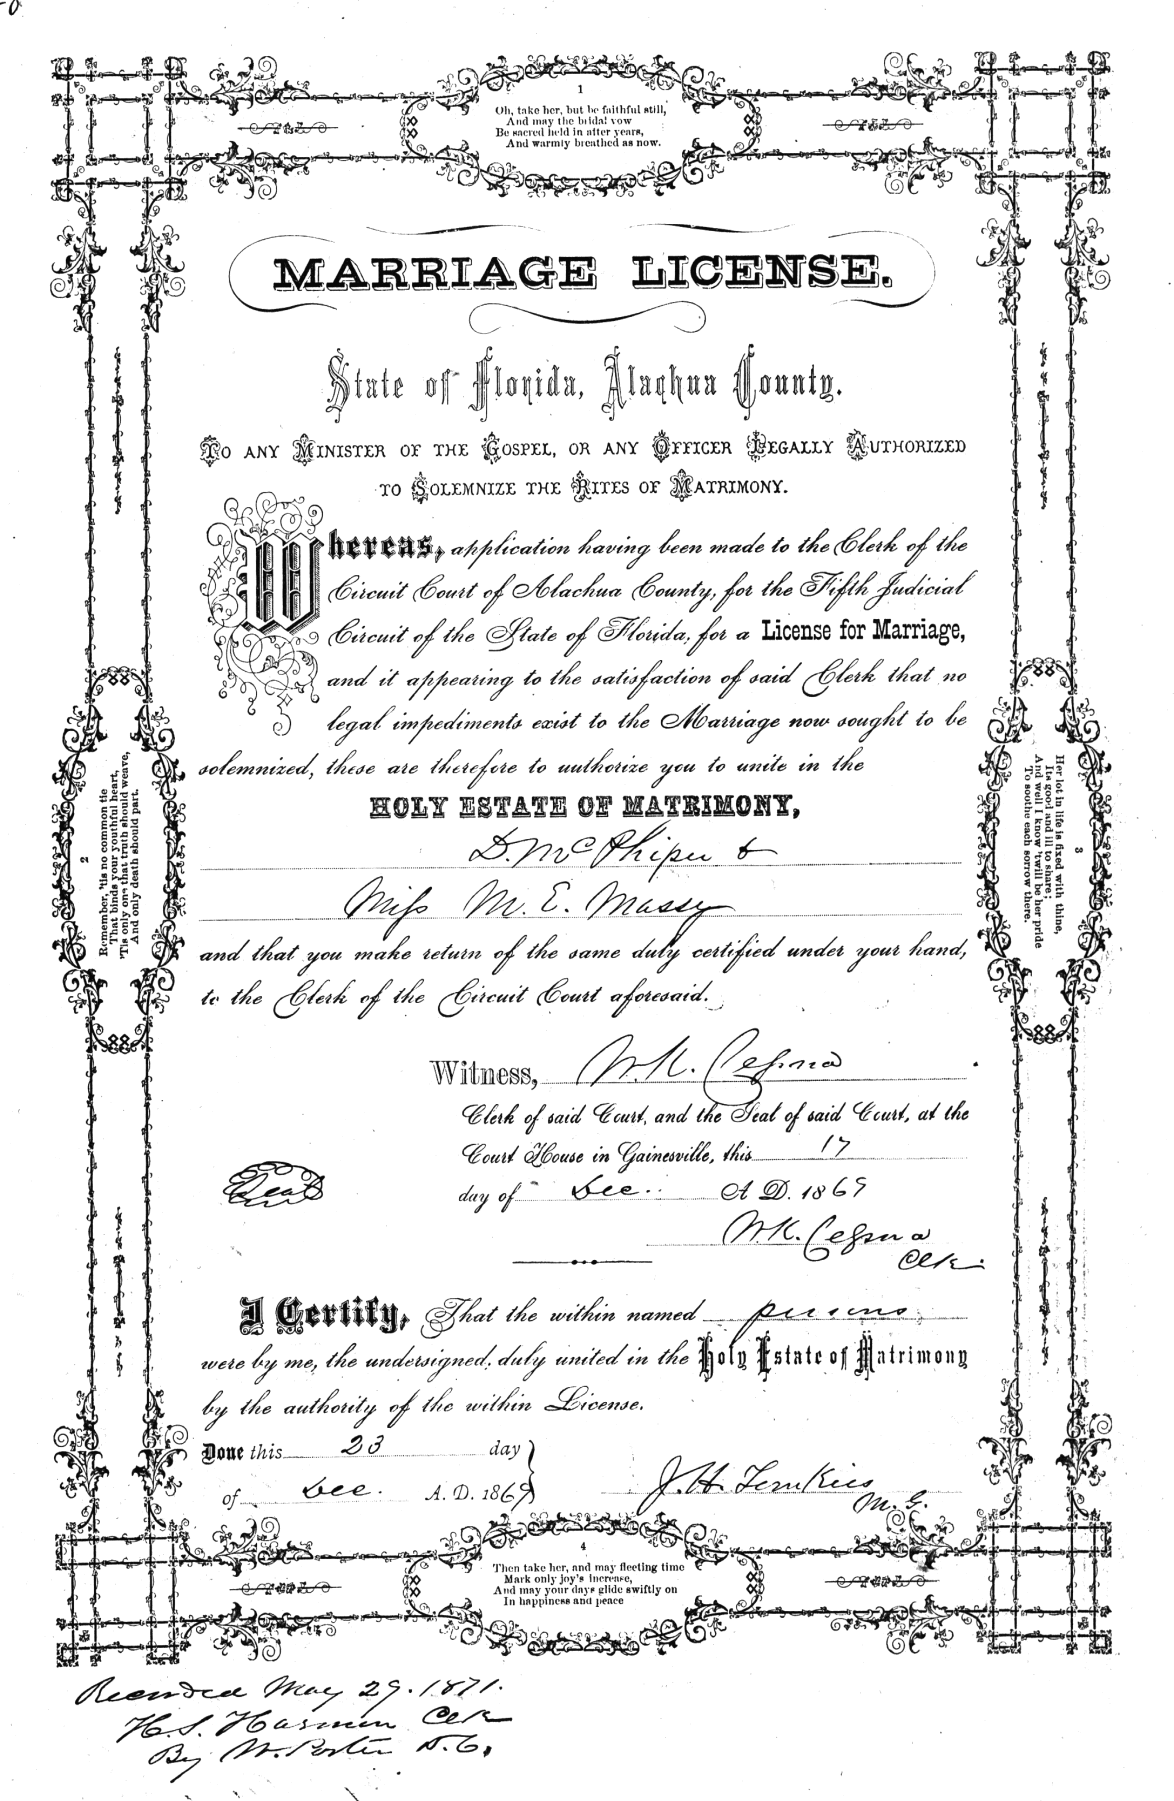 1
Oh, take her, but be faithful still,
And may the bridal vow
Be sacred held in after years,
And warmly breathed as now.
MARRIAGE LICENSE.
State of Florida, Alachua County.
TO ANY MINISTER OF THE GOSPEL, OR ANY OFFICER LEGALLY AUTHORIZED
TO SOLEMNIZE THE RITES OF MATRIMONY.
Whereas, application having been made to the Clerk of the
Circuit Court of Alachua County, for the Fifth Judicial
Circuit of the State of Florida, for a License for Marriage,
and it appearing to the satisfaction of said Clerk that no
legal impediments exist to the Marriage now sought to be
solemnized, these are therefore to authorize you to unite in the
HOLY ESTATE OF MATRIMONY,
D. McPhiper &
Miss M. E. Massy
and that you make return of the same duly certified under your hand,
to the Clerk of the Circuit Court aforesaid.
Witness, W. K. Cessna
Clerk of said Court, and the Seal of said Court, at the
Court House in Gainesville, this 17
Seal
day of Dec. A. D. 1869
W. K. Cessna
Clk.
I Certify, That the within named persons,
were by me, the undersigned, duly united in the Holy Estate of Matrimony
by the authority of the within License.
Done this 23 day
of Dec. A. D. 1869
J. H.
M. G.
2
Remember, 'tis no common tie
That binds your youthful heart,
'Tis one that only truth should weave,
And only death should part.
3
Her lot in life is fixed with thine,
Its good and ill to share;
And well I know 'twill be her pride
To soothe each sorrow there.
4
Then take her, and may fleeting time
Mark only joy's increase,
And may your days glide swiftly on
In happiness and peace
Recorded May 29. 1871.
H. S. Harmon Clk
By W. Porter D. C.